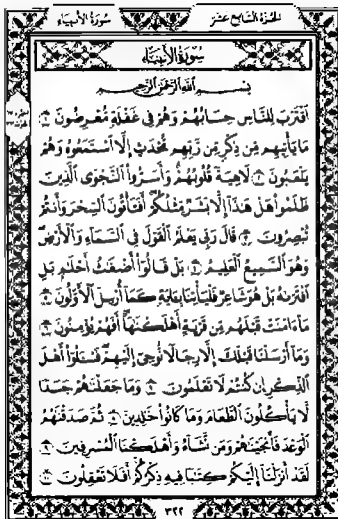 الجزء السابع عشر سورة الأنبياء
سورة الأنبياء
بسم الله الرحمن الرحيم
اقترب للناس حسابهم وهم في غفلة معرضون ١
ما يأتيهم من ذكر من ربهم محدث إلا استمعوه وهم
يلعبون ٢ لاهية قلوبهم وأسروا النجوى الذين
ظلموا هل هذا إلا بشر مثلكم أفتأتون السحر وأنتم
تبصرون ٣ قال ربي يعلم القول في السماء والأرض
وهو السميع العليم ٤ بل قالوا أضغاث أحلام بل
افتراه بل هو شاعر فليأتنا بآية كما أرسل الأولون ٥
ما آمنت قبلهم من قرية أهلكناها أفهم يؤمنون ٦
وما أرسلنا قبلك إلا رجالا نوحي إليهم فسئلوا أهل
الذكر إن كنتم لا تعلمون ٧ وما جعلناهم جسدا
لا يأكلون الطعام وما كانوا خالدين ٨ ثم صدقناهم
الوعد فأنجيناهم ومن نشاء وأهلكنا المسرفين ٩
لقد أنزلنا إليكم كتابا فيه ذكركم أفلا تعقلون ١٠
٣٢٢